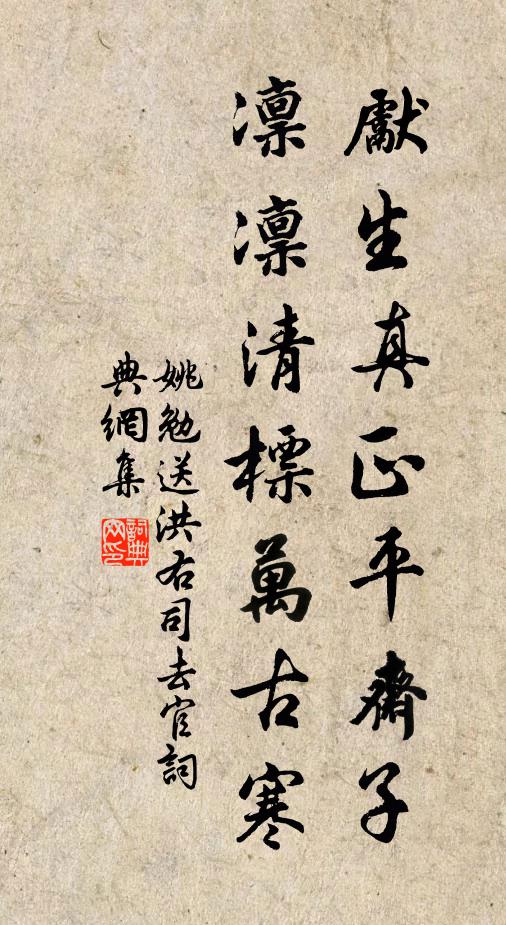 獻生真正平齋子
凜凜清標萬古寒
姚勉送洪右司去官詞
典網集
詞典網印